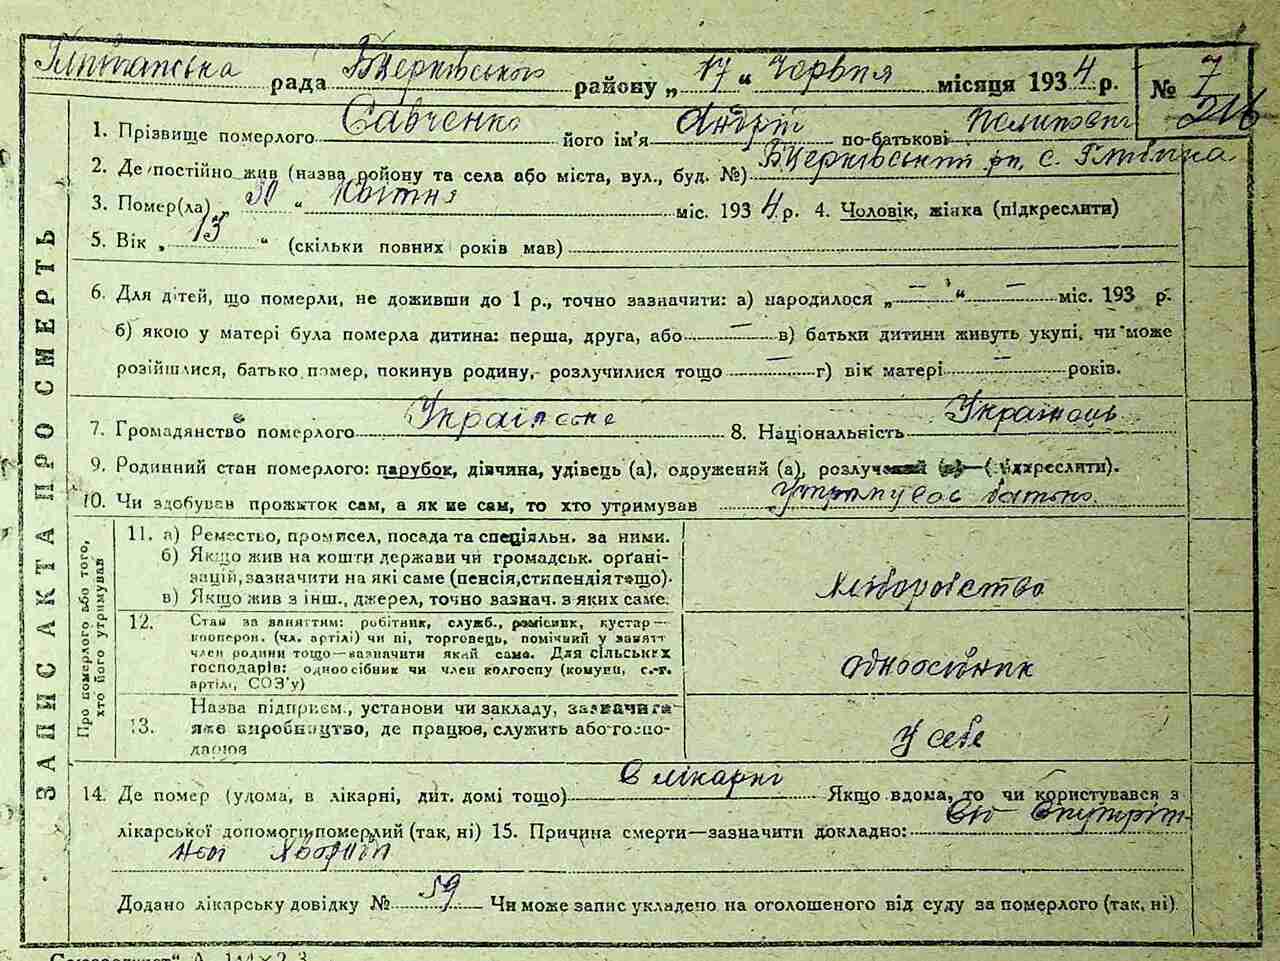 рада Бцерківського району „17“ Червня місяця 1934 р. № 7
216
1. Прізвище померлого Савченко його ім'я Андрій по-батькові
2. Де постійно жив (назва району та села або міста, вул., буд. №) Бцерківський рн. с.
3. Помер(ла) „30“ Квітня міс. 1934 р. 4. Чоловік, жінка (підкреслити)
5. Вік „13“ (скільки повних років мав)
6. Для дітей, що померли, не доживши до 1 р., точно зазначити: а) народилося „—“ — міс. 193 р.
б) якою у матері була померла дитина: перша, друга, або — в) батьки дитини живуть укупі, чи може
розійшлися, батько помер, покинув родину, розлучилися тощо — г) вік матері — років.
7. Громадянство померлого Українське 8. Національність Українець
9. Родинний стан померлого: парубок, дівчина, удівець (а), одружений (а),
10. Чи здобував прожиток сам, а як не сам, то хто утримував утримував батько
ЗАПИС АКТА ПРО СМЕРТЬ
Про померлого або того,
хто його утримував
11. а) Ремество, промисел, посада та спеціяльн. за ними.
б) Якщо жив на кошти держави чи громадськ. орґані-
зацій, зазначити на які саме (пенсія, стипендія тощо).
в) Якщо жив з інш., джерел, точно зазнач. з яких саме.
Хліборобство
12. Стан за заняттим: робітник, служб., ремісник, кустар—
кооперон. (чл. артілі) чи ні, торговець, помічний у занятт
член родини тощо—зазначити який саме. Для сільських
господарів: одноосібник чи член колгоспу (комуни, с.-г.
артілі, СОЗ'у)
одноосібник
13. Назва підприєм., установи чи закладу, зазначити
яке виробництво, де працює, служить або госпо-
дарює
У себе
14. Де помер (удома, в лікарні, дит. домі тощо) В лікарні Якщо вдома, то чи користувався з
лікарської допомоги померлий (так, ні) 15. Причина смерти—зазначити докладно:
Додано лікарську довідку № 59 Чи може запис укладено на оголошеного від суду за померлого (так, ні)